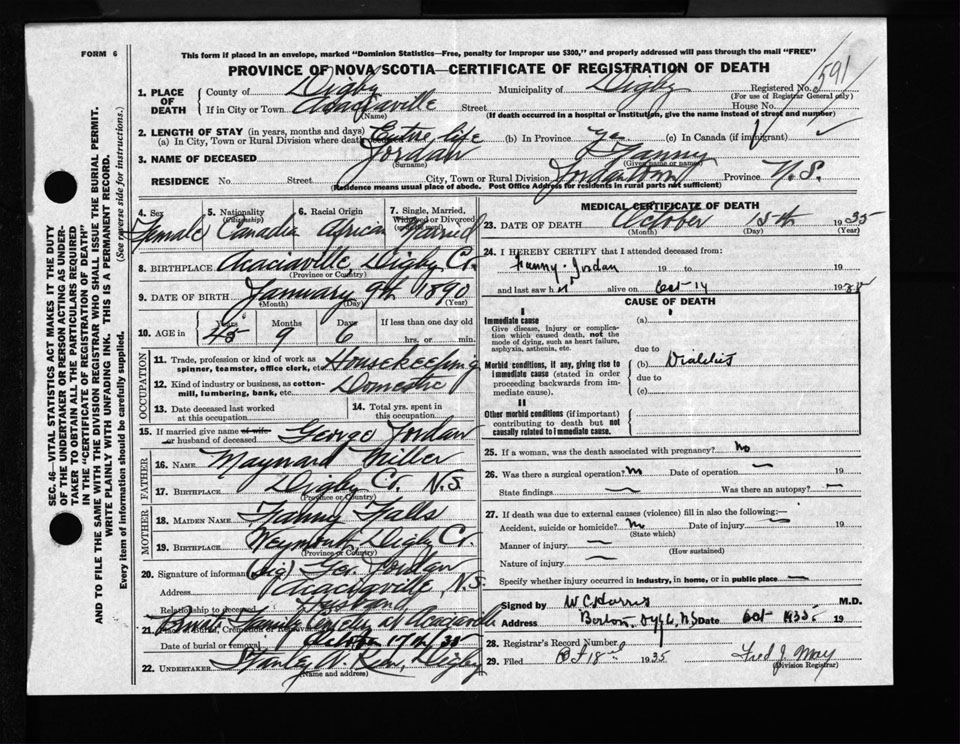 FORM 6
This form if placed in an envelope, marked "Dominion Statistics—Free, penalty for improper use $300," and properly addressed will pass through the mail "FREE"
PROVINCE OF NOVA SCOTIA—CERTIFICATE OF REGISTRATION OF DEATH
591
SEC. 46—VITAL STATISTICS ACT MAKES IT THE DUTY
OF THE UNDERTAKER OR PERSON ACTING AS UNDER-
TAKER TO OBTAIN ALL THE PARTICULARS REQUIRED
IN THE "CERTIFICATE OF REGISTRATION OF DEATH"
AND TO FILE THE SAME WITH THE DIVISION REGISTRAR WHO SHALL ISSUE THE BURIAL PERMIT.
WRITE PLAINLY WITH UNFADING INK. THIS IS A PERMANENT RECORD.
Every item of information should be carefully supplied. (See reverse side for instructions.)
1. PLACE OF DEATH County of Digby Municipality of Digby Registered No.
(For use of Registrar General only)
If in City or Town Acaciaville Street House No.
(Name) (If death occurred in a hospital or institution, give the name instead of street and number)
2. LENGTH OF STAY (in years, months and days)
(a) In City, Town or Rural Division where death occurred Entire life (b) In Province (c) In Canada (if immigrant)
3. NAME OF DECEASED Jordan Fanny
(Surname) (Given name or names)
RESIDENCE No. Street City, Town or Rural Division Jordantown Province N.S.
(Residence means usual place of abode. Post Office Address for residents in rural parts not sufficient)
4. Sex Female
5. Nationality (Citizenship) Canadia
6. Racial Origin African
7. Single, Married, Widowed or Divorced Married
8. BIRTHPLACE Acaciaville, Digby Co.
(Province or Country)
9. DATE OF BIRTH January 9th 1890
(Month) (Day) (Year)
10. AGE in Years Months Days If less than one day old
45 9 6 hrs. or min.
OCCUPATION
11. Trade, profession or kind of work as spinner, teamster, office clerk, etc. Housekeeping
12. Kind of industry or business, as cotton-mill, lumbering, bank, etc. Domestic
13. Date deceased last worked at this occupation
14. Total yrs. spent in this occupation
15. If married give name of wife or husband of deceased George Jordan
FATHER
16. NAME Maynard Miller
17. BIRTHPLACE Digby Co. N.S.
(Province or Country)
MOTHER
18. MAIDEN NAME Fanny Falls
19. BIRTHPLACE Weymouth, Digby Co.
(Province or Country)
20. Signature of informant (sig) Geo. Jordan
Address Acaciaville, N.S.
Relationship to deceased Husband
21. Place of Burial, Cremation or Removal Private Family Cemetery at Acaciaville
Date of burial or removal 17th, 35
22. UNDERTAKER Stanley W. Digby
(Name and address)
MEDICAL CERTIFICATE OF DEATH
23. DATE OF DEATH October 15th 1935
(Month) (Day) (Year)
24. I HEREBY CERTIFY that I attended deceased from:
Fanny Jordan 19 to 19
and last saw h er alive on Oct 14 1935
CAUSE OF DEATH
I
Immediate cause
Give disease, injury or complication which caused death, not the mode of dying, such as heart failure, asphyxia, asthenia, etc.
(a)
due to
Morbid conditions, if any, giving rise to immediate cause (stated in order proceeding backwards from immediate cause).
(b) Diabetes
due to
(c)
II
Other morbid conditions (if important) contributing to death but not causally related to immediate cause.
25. If a woman, was the death associated with pregnancy? No
26. Was there a surgical operation? No Date of operation 19
State findings Was there an autopsy?
27. If death was due to external causes (violence) fill in also the following:
Accident, suicide or homicide? No Date of injury 19
(State which)
Manner of injury
(How sustained)
Nature of injury
Specify whether injury occurred in industry, in home, or in public place
Signed by W C Harris M.D.
Address Date Oct 1935 19
28. Registrar's Record Number
29. Filed Oct 18th 1935 Fred J. May
(Division Registrar)